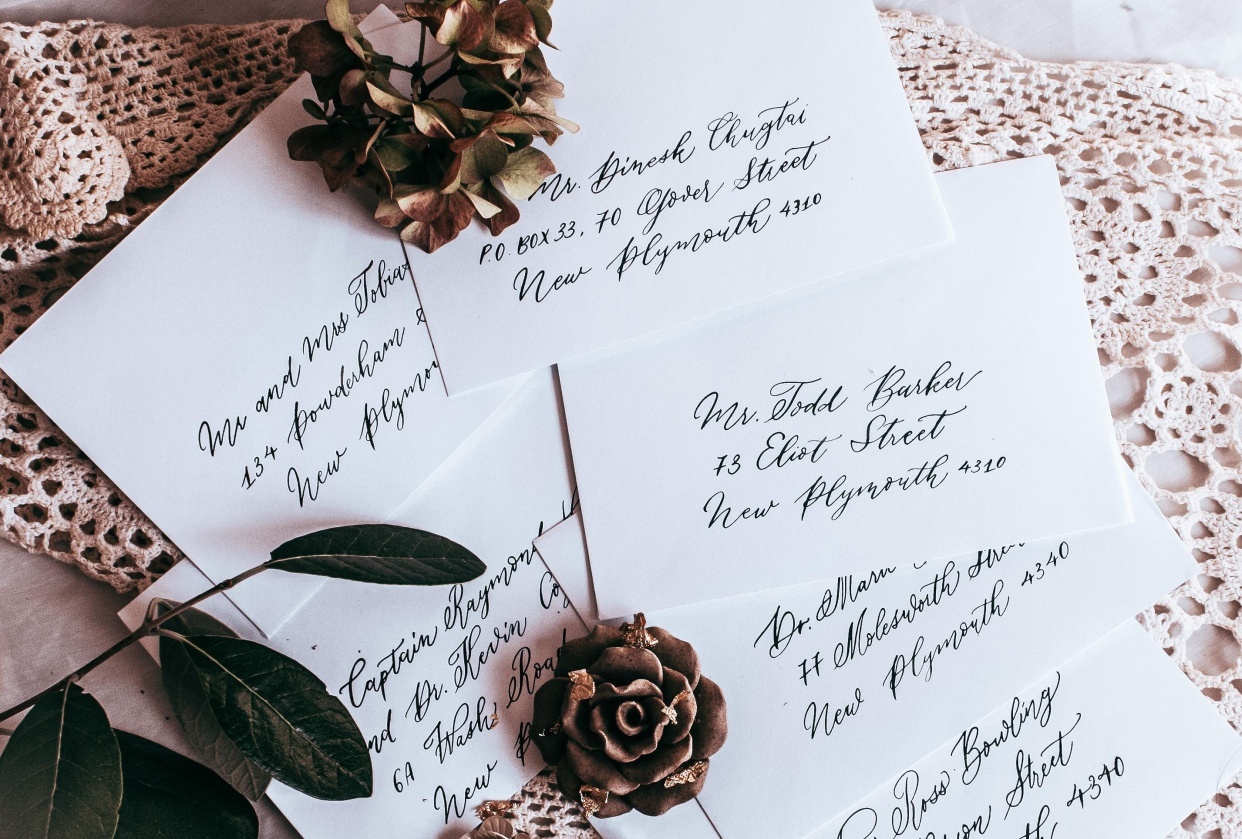 Mr. Dinesh Chugtai
P.O. BOX 33, 70 Gover Street
New Plymouth 4310
Mr and Mrs Tobias
134 Powderham
New Plymou
Mr. Todd Barker
73 Eliot Street
New Plymouth 4310
Captain Raymond
and Dr. Kevin
6A Wash Road
New
Dr.
77 Molesworth Street
New Plymouth 4340
Ross Bowling
Street
4340